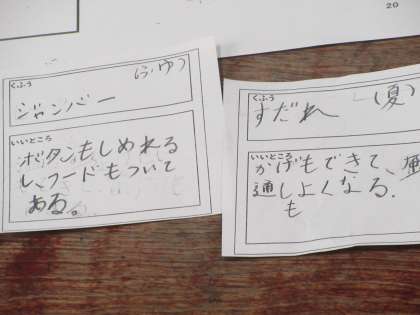 20
くふう
(ふゆ)
ジャンバー
いいところ
ボタンもしめれる
し、フードもついて
ある。
くふう
(夏)
すだれ
いいところ
かげもできて、風
通しよくなる。
も